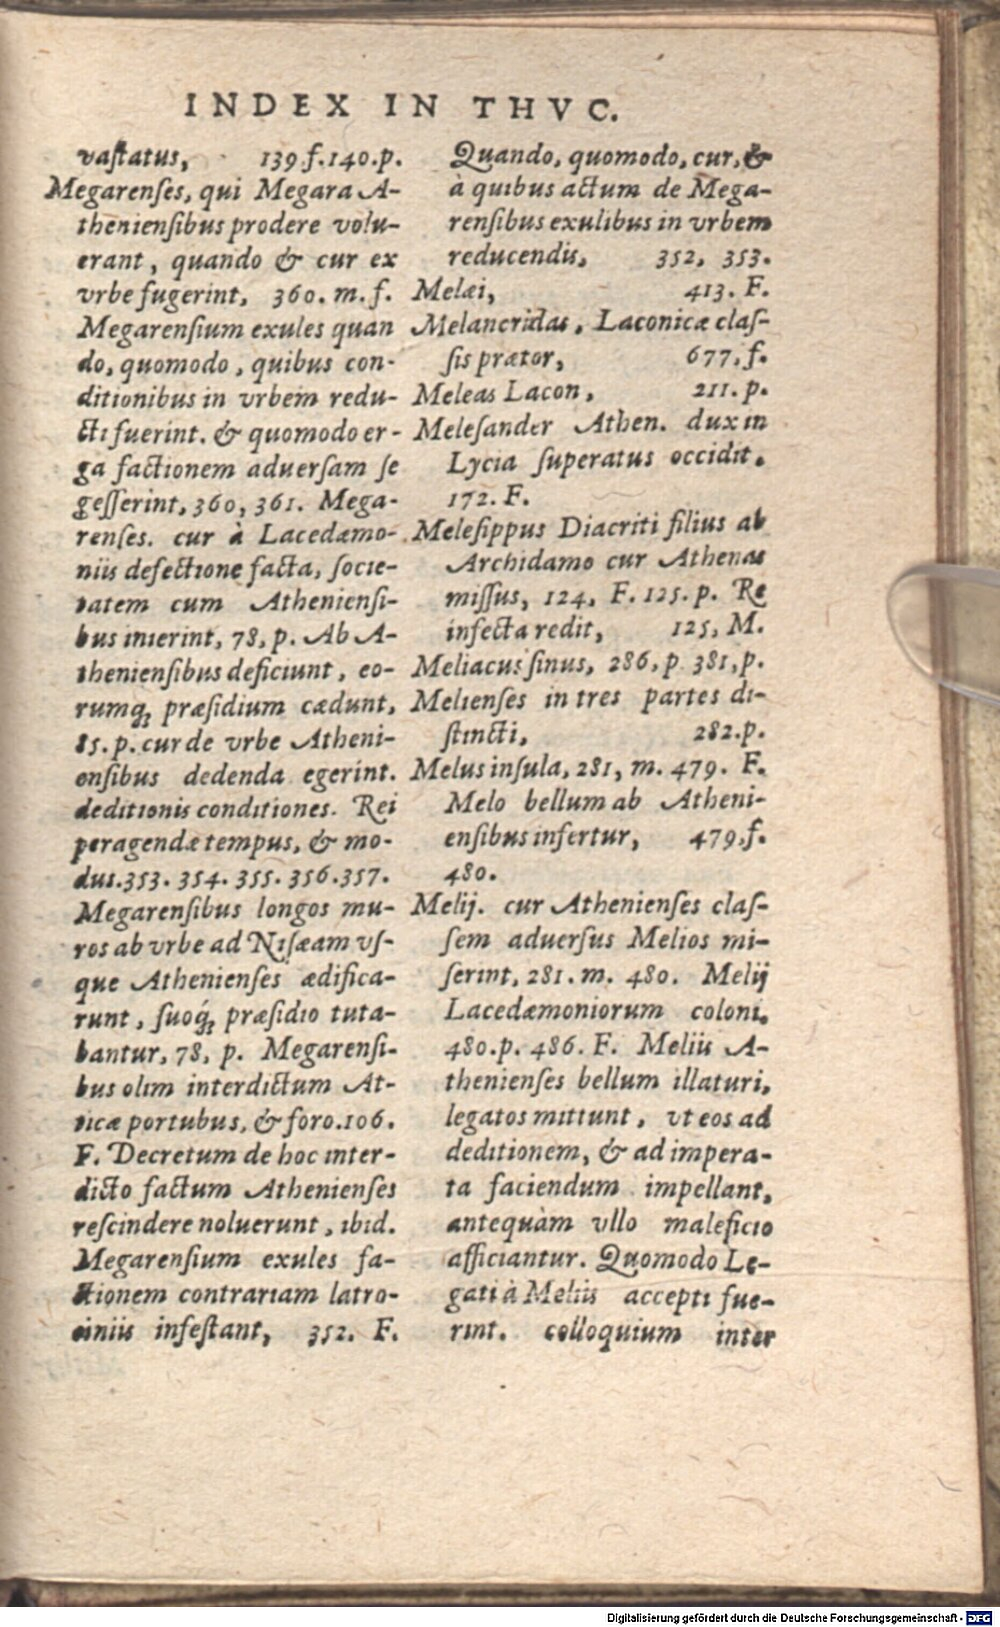 INDEX IN THVC.
vaſtatus, 139.f.140.p.
Megarenſes, qui Megara A-
thenienſibus prodere volu-
erant, quando & cur ex
vrbe fugerint, 360. m. f.
Megarenſium exules quan
do, quomodo, quibus con-
ditionibus in vrbem redu-
cti fuerint. & quomodo er-
ga factionem aduerſam ſe
geſſerint, 360, 361. Mega-
renſes. cur à Lacedæmo-
niis defectione facta, ſocie-
tatem cum Athenienſi-
bus inierint, 78, p. Ab A-
thenienſibus deficiunt, eo-
rumq; præſidium cædunt,
85. p. cur de vrbe Atheni-
enſibus dedenda egerint.
deditionis conditiones. Rei
peragendæ tempus, & mo-
dus.353. 354. 355. 356.357.
Megarenſibus longos mu-
ros ab vrbe ad Niſæam vſ-
que Athenienſes ædifica-
runt, ſuoq́; præſidio tuta-
bantur, 78, p. Megarenſi-
bus olim interdictum At-
ticæ portubus, & foro.106.
F. Decretum de hoc inter-
dicto factum Athenienſes
reſcindere noluerunt, ibid.
Megarenſium exules fa-
ctionem contrariam latro-
ciniis infeſtant, 352. F.
Quando, quomodo, cur, &
à quibus actum de Mega-
renſibus exulibus in vrbem
reducendis, 352, 353.
Melæi, 413. F.
Melancridas, Laconicæ claſ-
ſis prætor, 677, f.
Meleas Lacon, 211. p.
Meleſander Athen. dux in
Lycia ſuperatus occidit.
172. F.
Meleſippus Diacriti filius ab
Archidamo cur Athenas
miſſus, 124, F. 125. p. Re
infecta redit, 125, M.
Meliacus ſinus, 286, p 381, p.
Melienſes in tres partes di-
ſtincti, 282.p.
Melus inſula, 281, m. 479. F.
Melo bellum ab Atheni-
enſibus infertur, 479, f.
480.
Melij. cur Athenienſes claſ-
ſem aduerſus Melios mi-
ſerint, 281. m. 480. Melij
Lacedæmoniorum coloni.
480.p. 486. F. Meliis A-
thenienſes bellum illaturi,
legatos mittunt, vt eos ad
deditionem, & ad impera-
ta faciendum impellant,
antequàm vllo maleficio
afficiantur. Quomodo Le-
gati à Meliis accepti fue-
rint. colloquium inter
Digitalisierung gefördert durch die Deutsche Forschungsgemeinschaft - DFG